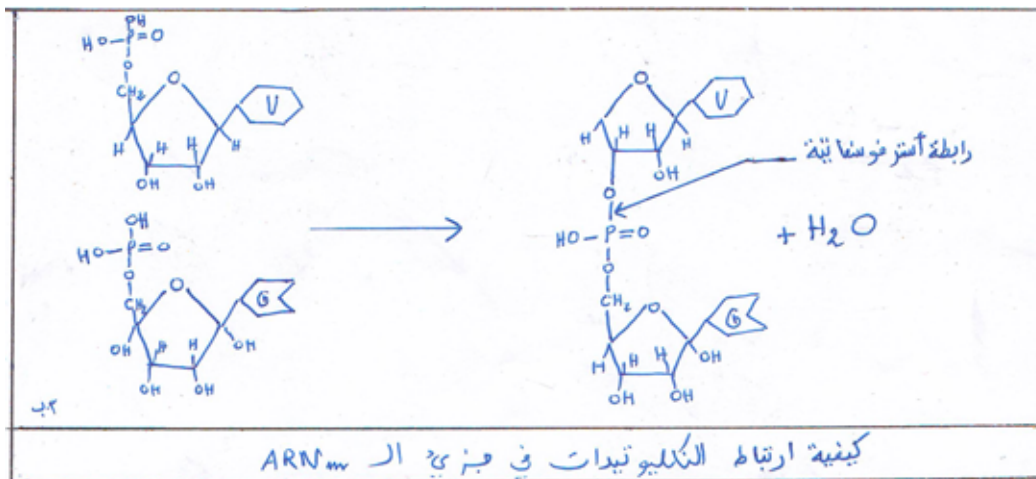 PH
HO-P=O
O
CH2
O
U
H H H H
OH OH
OH
HO-P=O
O
CH2
O
G
OH H H OH
OH OH
O
U
H H H H
OH
O
رابطة أستر فوسفاتية
HO-P=O
+ H2O
O
CH2
O
G
H H H OH
OH OH
كيفية ارتباط النكليوتيدات في جزيء الـ ARNm